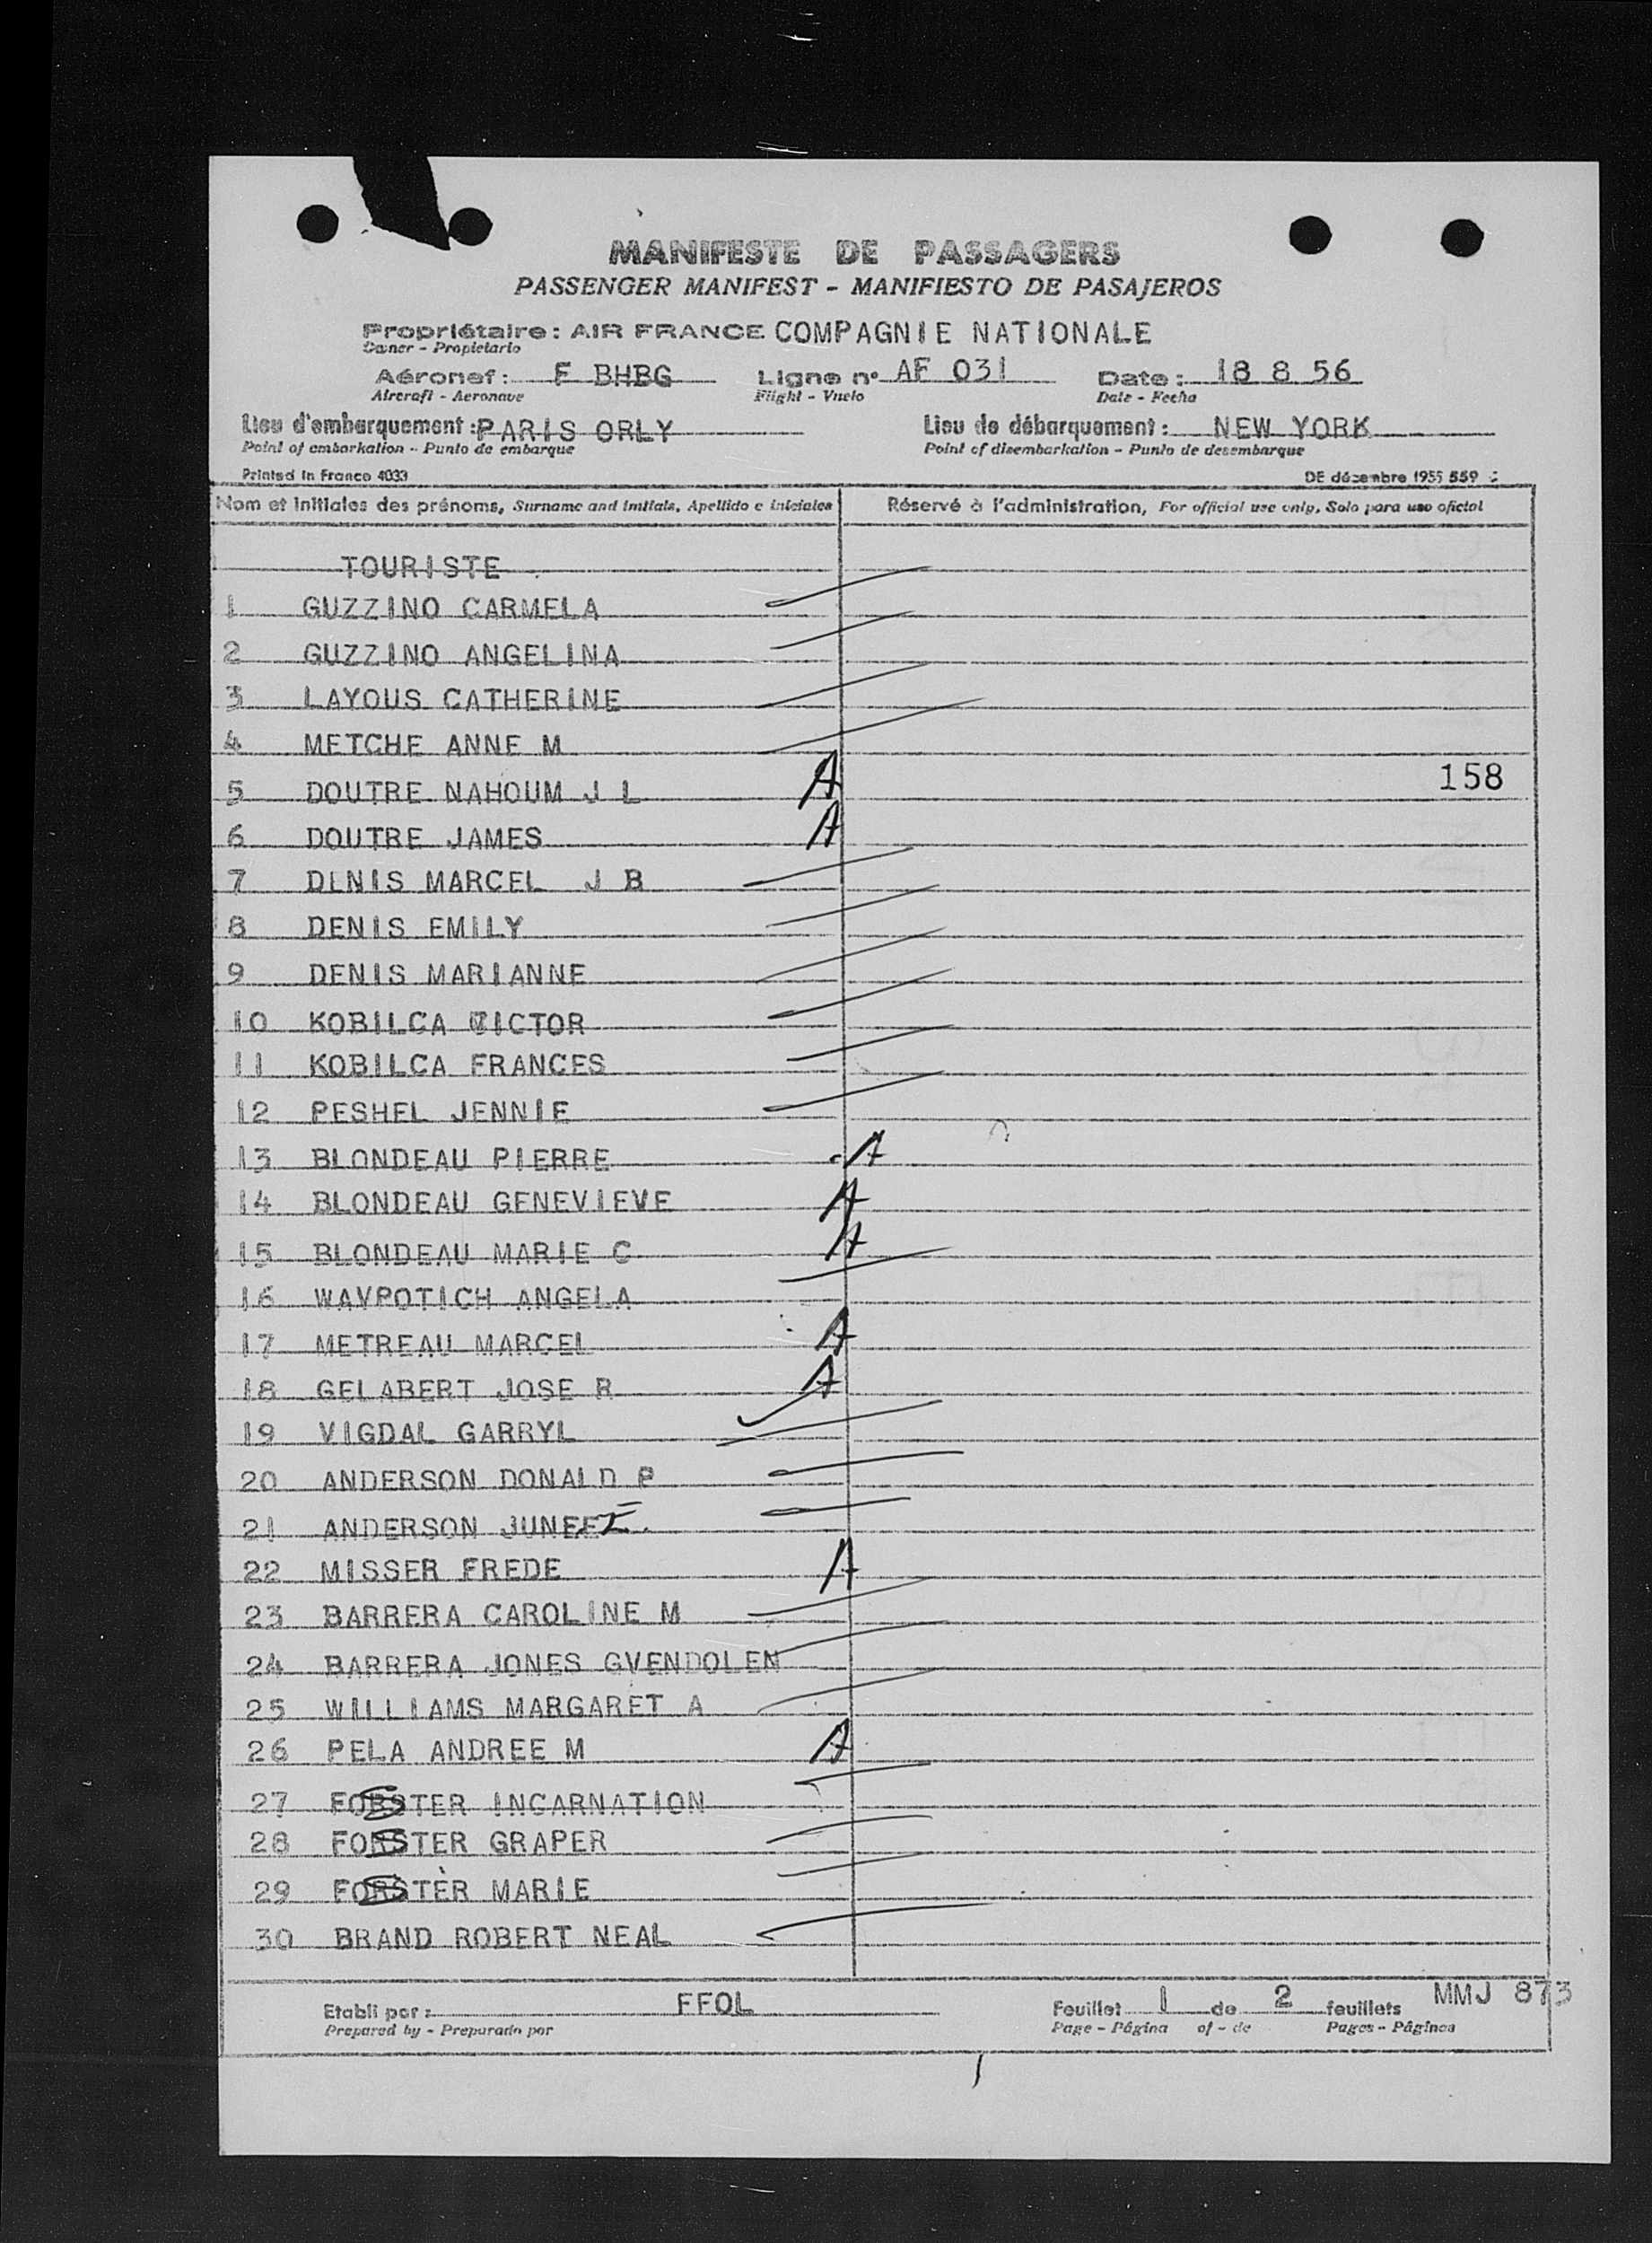 MANIFESTE DE PASSAGERS
PASSENGER MANIFEST - MANIFIESTO DE PASAJEROS
Propriétaire : AIR FRANCE COMPAGNIE NATIONALE
Owner - Propietario
Aéronef : F BHBG Ligne n° AF 031 Date : 18 8 56
Aircraft - Aeronave Flight - Vuelo Date - Fecha
Lieu d'embarquement : PARIS ORLY Lieu de débarquement : NEW YORK
Point of embarkation - Punto de embarque Point of disembarkation - Punto de desembarque
Printed in France 4033 DE décembre 1955 559
Nom et initiales des prénoms, Surname and initials, Apellido e iniciales Réservé à l'administration, For official use only, Solo para uso oficial
TOURISTE
1 GUZZINO CARMELA
2 GUZZINO ANGELINA
3 LAYOUS CATHERINE
4 METCHE ANNE M
5 DOUTRE NAHOUM J L A 158
6 DOUTRE JAMES A
7 DENIS MARCEL J B
8 DENIS EMILY
9 DENIS MARIANNE
10 KOBILCA VICTOR
11 KOBILCA FRANCES
12 PESHEL JENNIE
13 BLONDEAU PIERRE A
14 BLONDEAU GENEVIEVE A
15 BLONDEAU MARIE C A
16 WAVPOTICH ANGELA
17 METREAU MARCEL A
18 GELABERT JOSE R A
19 VIGDAL GARRYL
20 ANDERSON DONALD P
21 ANDERSON JUNE E.
22 MISSER FREDE A
23 BARRERA CAROLINE M
24 BARRERA JONES GVENDOLEN
25 WILLIAMS MARGARET A
26 PELA ANDREE M A
27 FOSTER INCARNATION
28 FOSTER GRAPER
29 FOSTER MARIE
30 BRAND ROBERT NEAL
Etabli par : FFOL Feuillet 1 de 2 feuillets MMJ 873
Prepared by - Preparado por Page - Página of - de Pages - Páginas